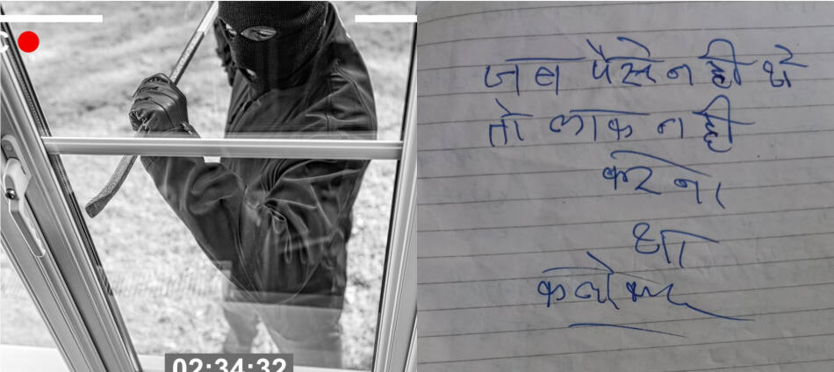 02:34:32
जब पैसे नही थे
तो लाक नही
करना
था
कलेक्टर